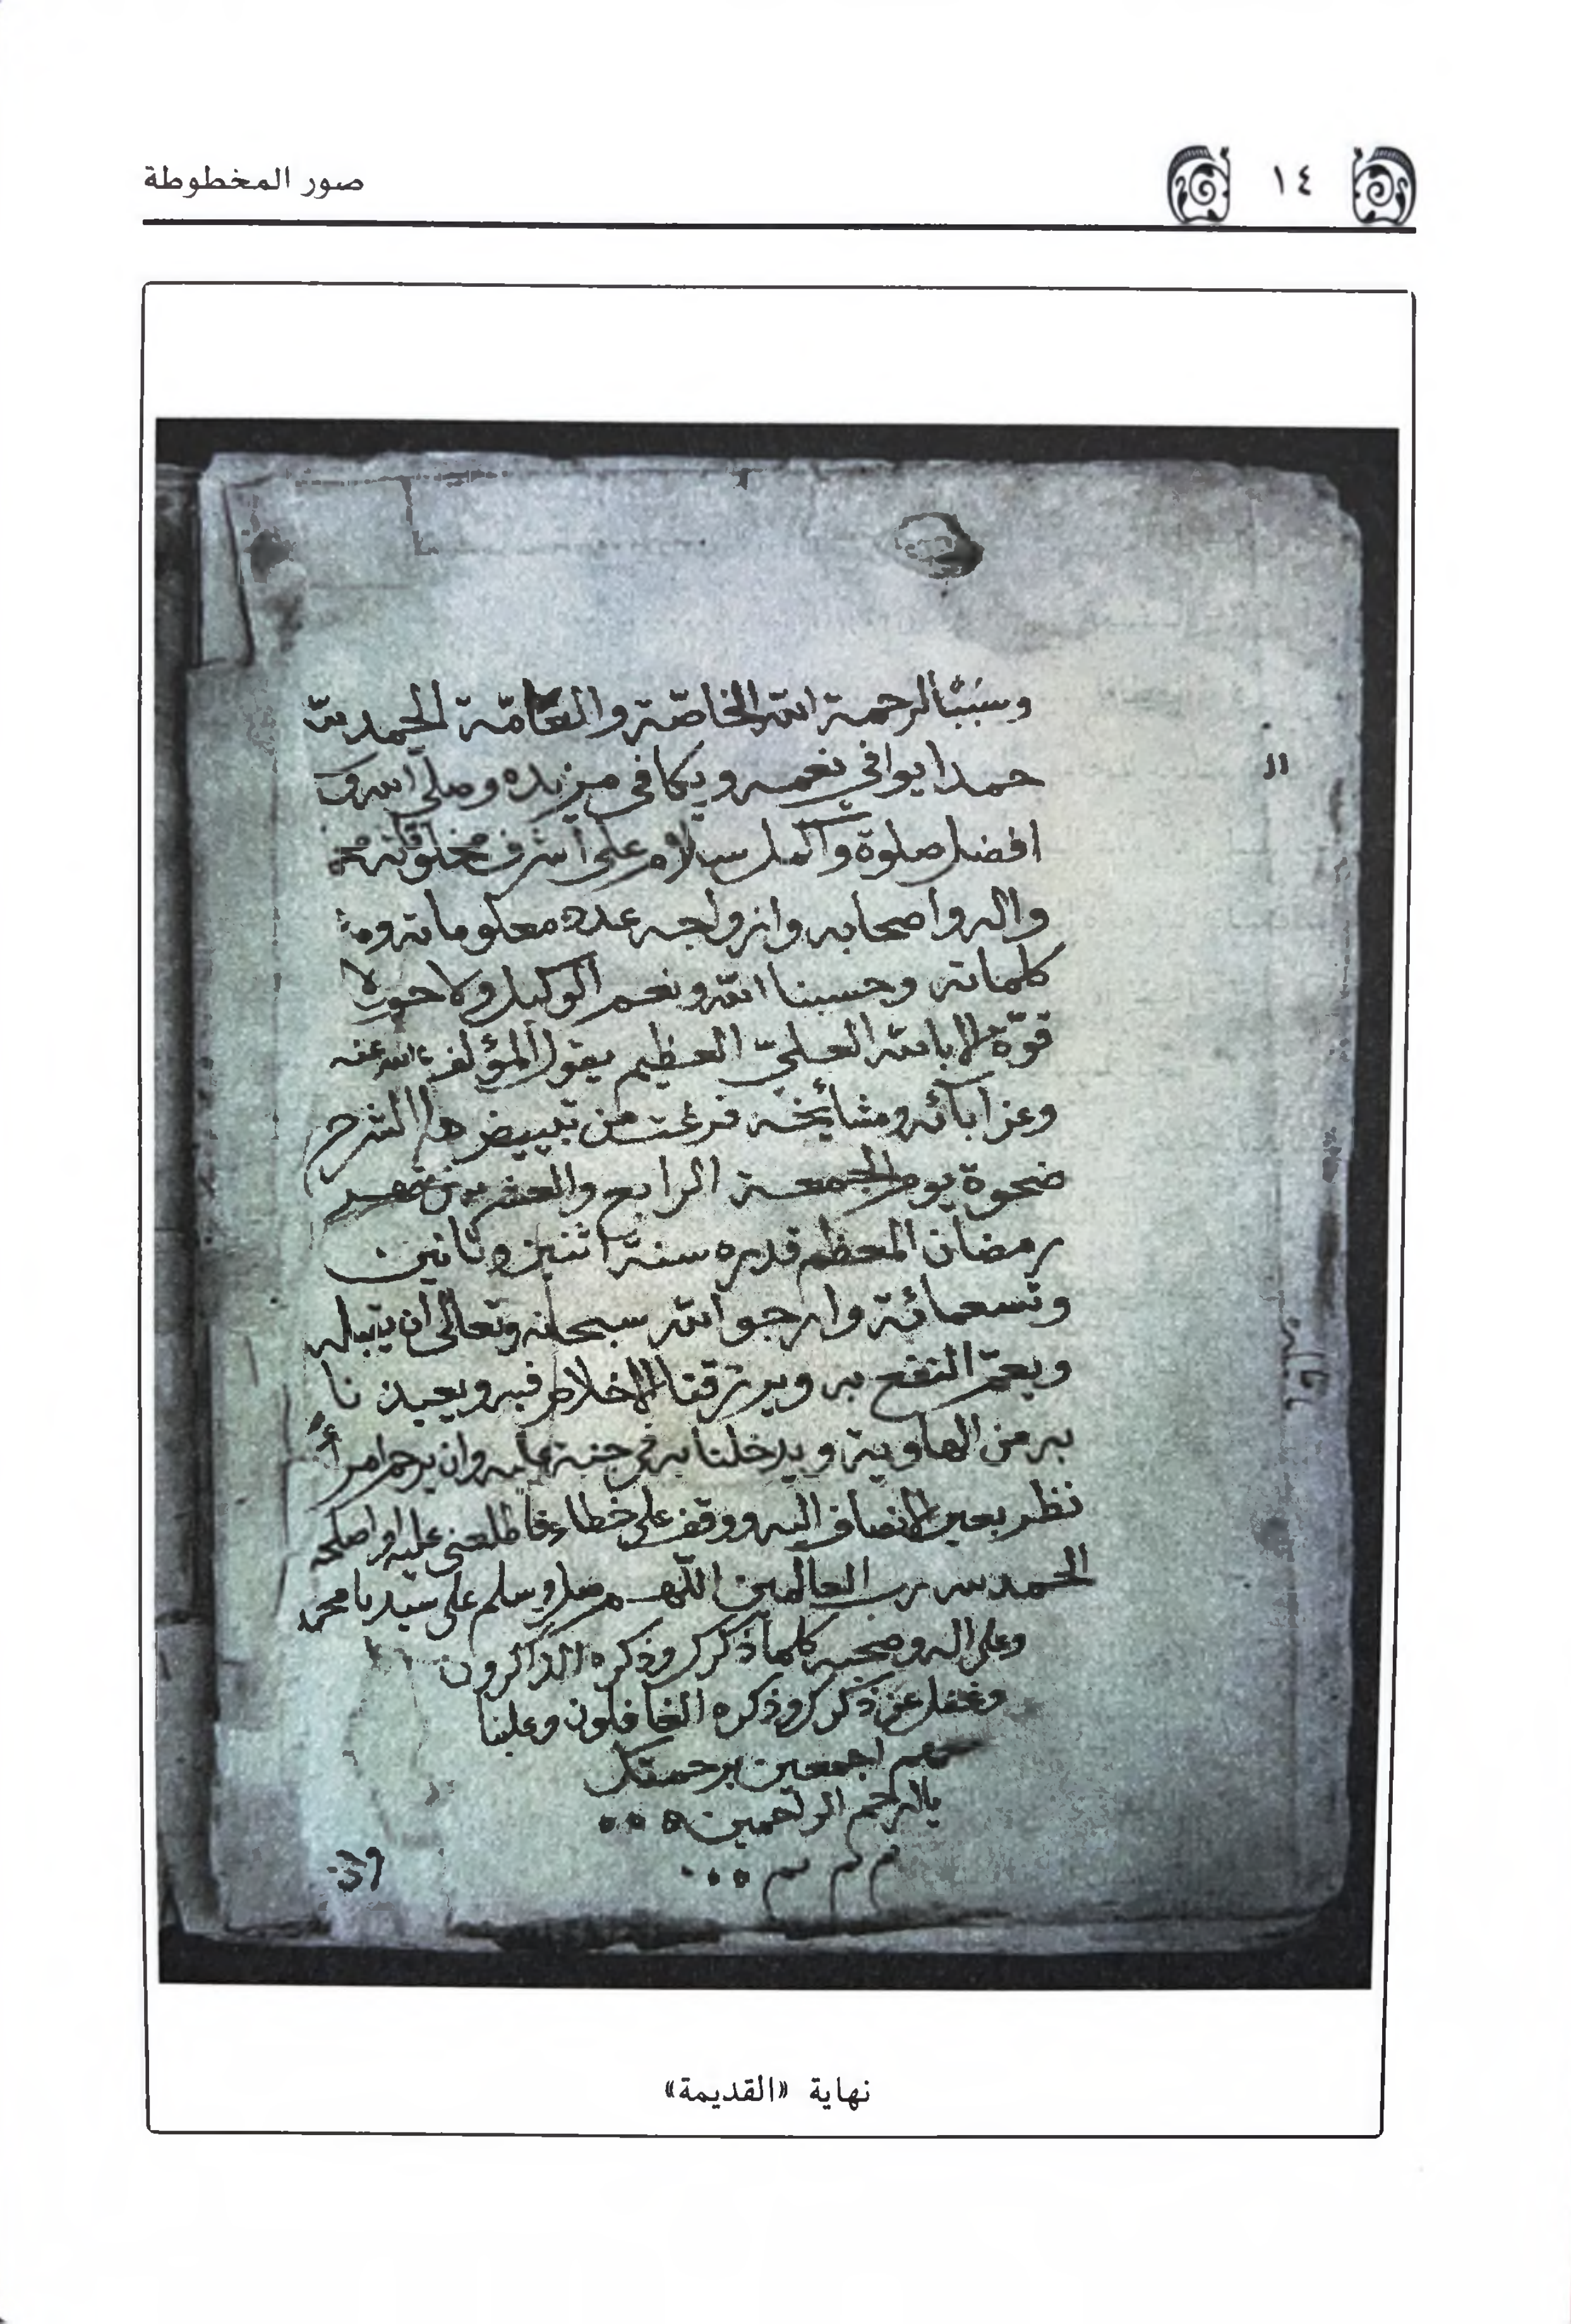 ١٤
صور المخطوطة
وسببًا لرحمة الله الخاصّة والعامّة الحمد لله
حمدا يوافي نعمه ويكافي مزيده وصلى الله
افضل صلوة واكمل سلام على أشرف مخلوقاته
واله واصحابه وازواجه عدد معلوماته
كلماته وحسبنا الله ونعم الوكيل ولا حول ولا
قوّة الا بالله العليّ العظيم يقول المؤلف الله عنه
وعن ابائه ومشائخه فرغت من تبييض هذا الشرح
ضحوة يوم الجمعة الرابع والعشرين من شهر
رمضان المعظم قدره سنة اثنين وثمانين
وتسعمائة وارجو الله سبحانه وتعالى ان يتقبله
ويعمّ النفع به ويرزقنا الاخلاص فيه ويعيذنا
به من الهاوية ويدخلنا به في جنة عاليه وان يرحم امرأً
نظر بعين الانصاف اليه ووقف على خطاء فاطلعني عليه او اصلحه
الحمد لله رب العالمين اللهم صل وسلم على سيدنا محمد
وعلى اله وصحبه كلما ذكرك وذكره الذاكرون
وغفل عن ذكرك وذكره الغافلون وعلينا
معهم اجمعين برحمتك
يا ارحم الراحمين
39
نهاية «القديمة»